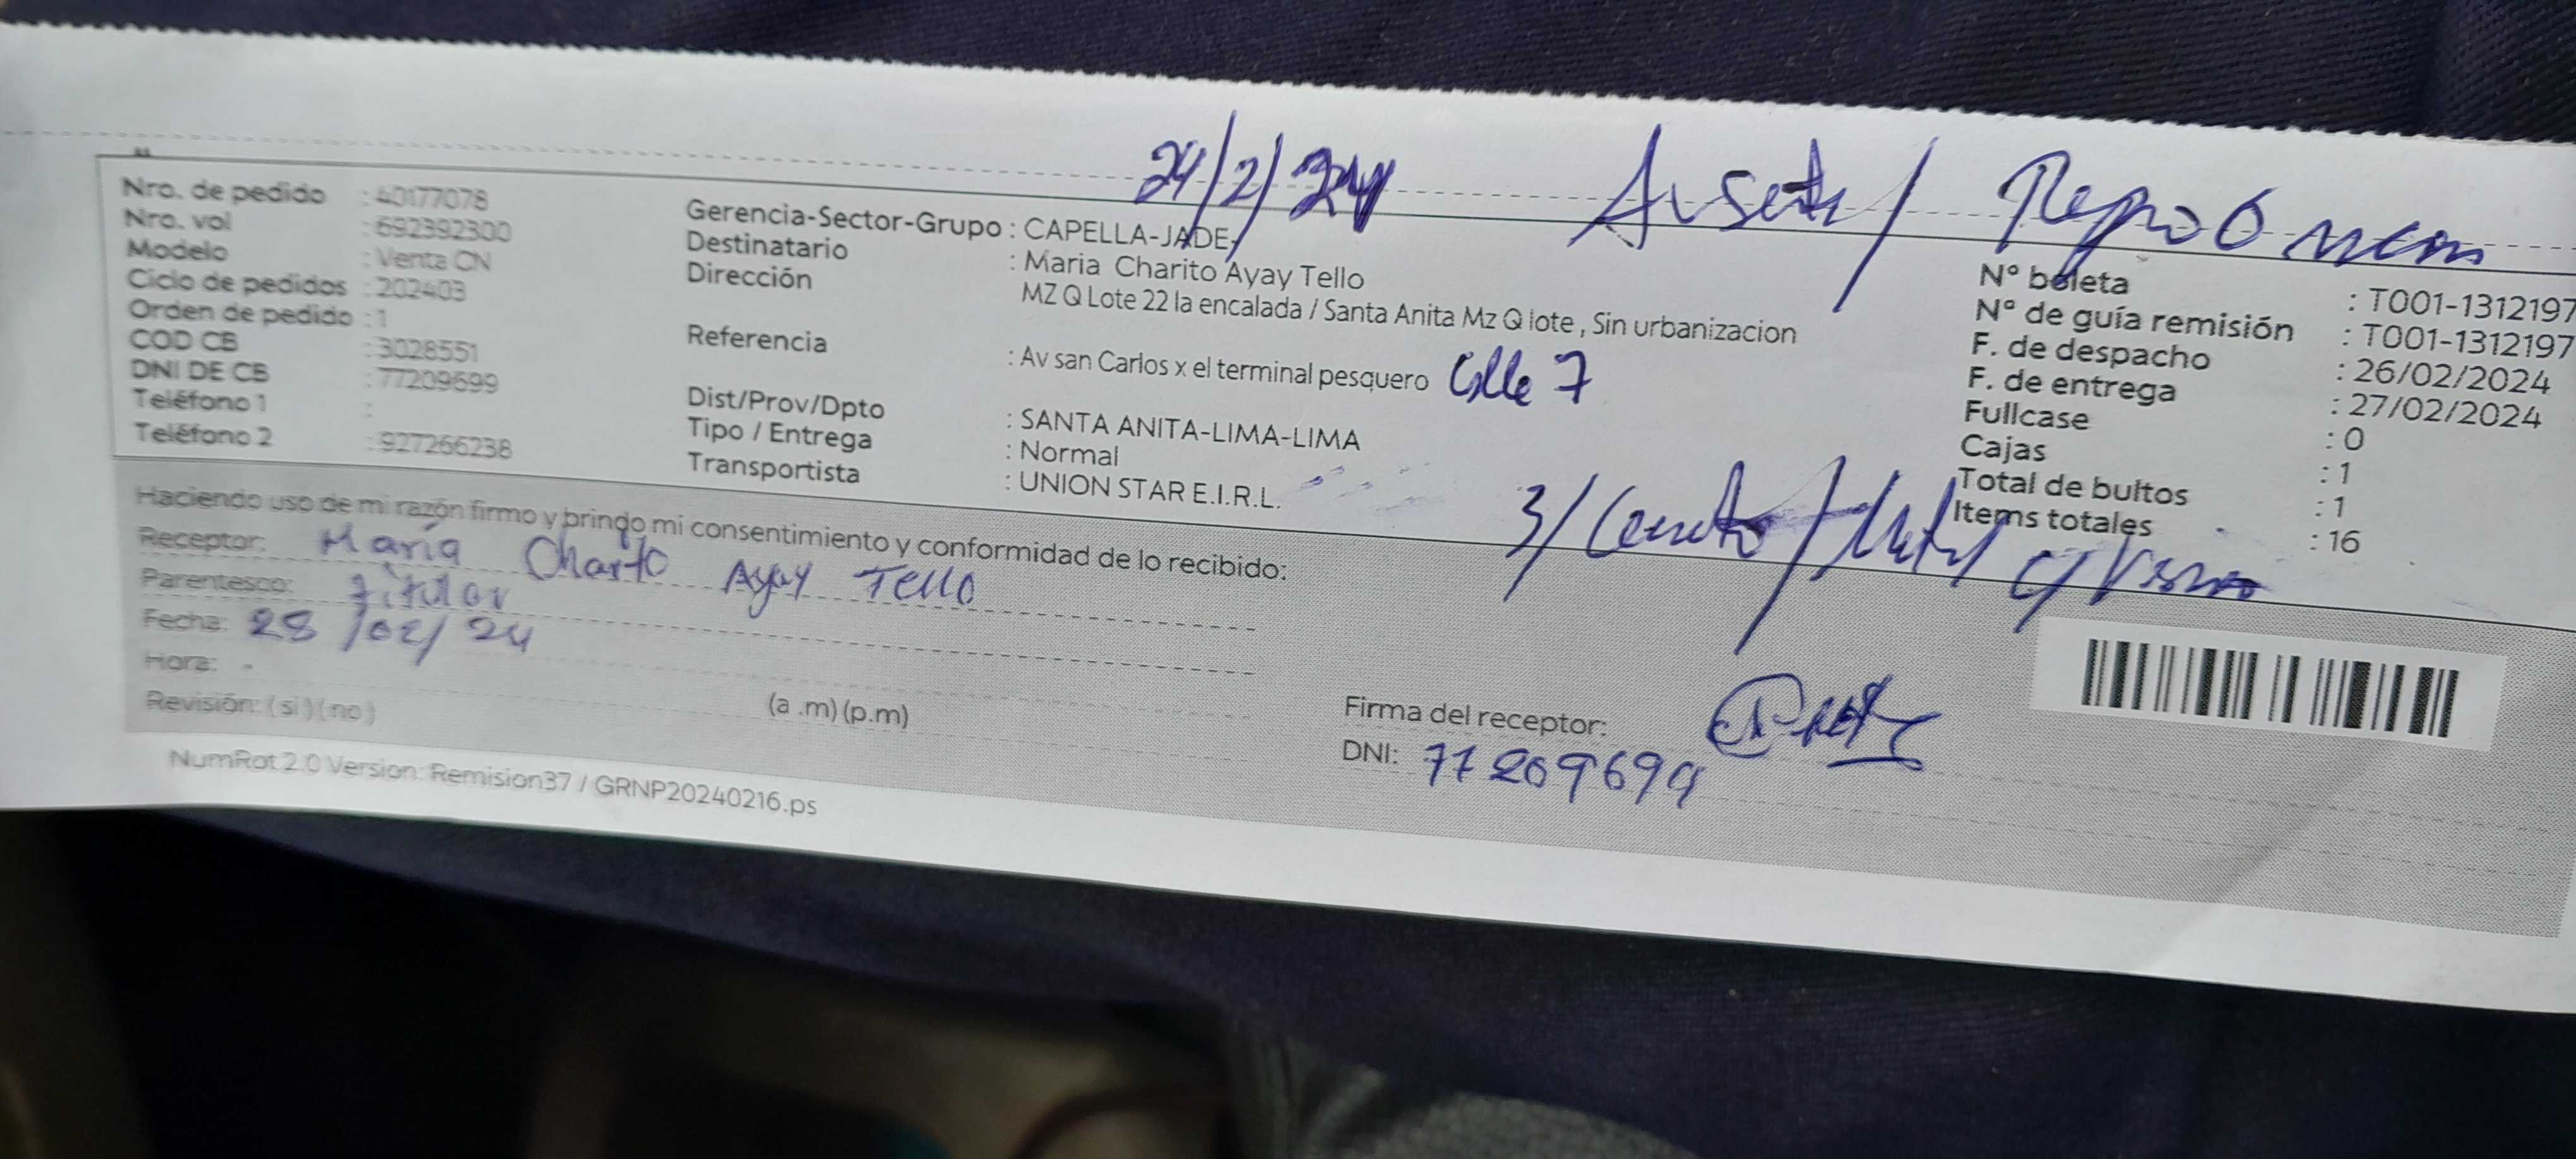 24/2/24 Ausente/
Nro. de pedido : 40177078
Nro. vol : 692392300
Modelo : Venta CN
Ciclo de pedidos : 202403
Orden de pedido : 1
COD CB : 3028551
DNI DE CB : 77209699
Teléfono 1 :
Teléfono 2 : 927266238
Gerencia-Sector-Grupo : CAPELLA-JADE-
Destinatario : Maria Charito Ayay Tello
Dirección MZ Q Lote 22 la encalada / Santa Anita Mz Q lote , Sin urbanizacion
Referencia : Av san Carlos x el terminal pesquero Calle 7
Dist/Prov/Dpto : SANTA ANITA-LIMA-LIMA
Tipo / Entrega : Normal
Transportista : UNION STAR E.I.R.L.
N° boleta : T001-1312197
N° de guía remisión : T001-1312197
F. de despacho : 26/02/2024
F. de entrega : 27/02/2024
Fullcase : 0
Cajas : 1
Total de bultos : 1
Items totales : 16
3/
Haciendo uso de mi razón firmo y bringo mi consentimiento y conformidad de lo recibido:
Receptor: María Charito Ayay Tello
Parentesco: titular
Fecha: 28/02/24
Hora: (a .m) (p.m)
Revisión: ( si ) ( no )
Firma del receptor:
DNI: 77209699
NumRot 2.0 Version: Remision37 / GRNP20240216.ps